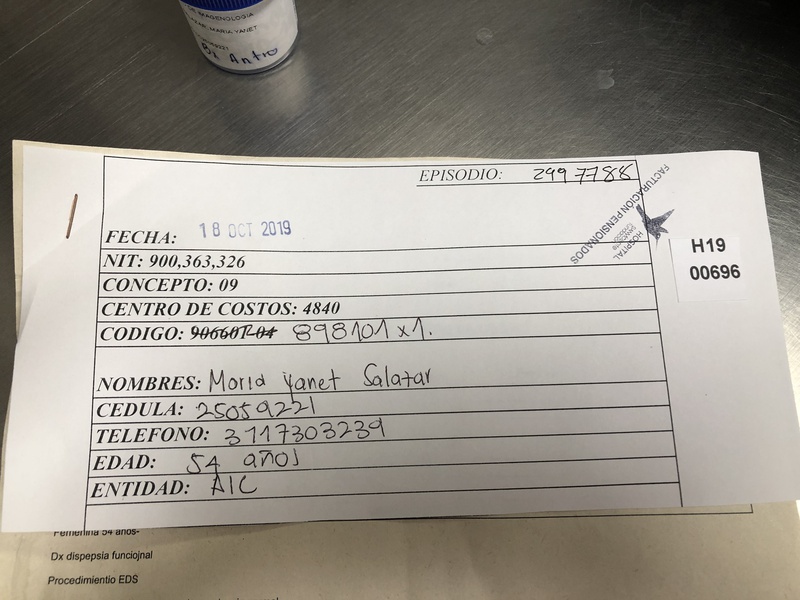 IMAGENOLOGIA
MARIA YANET
Bx Antro
EPISODIO: 2997788
FACTURACIÓN PENSIONADOS
HOSPITAL
FECHA: 18 OCT 2019
H19
00696
NIT: 900,363,326
CONCEPTO: 09
CENTRO DE COSTOS: 4840
CODIGO: 906607-04 898101 x1.
NOMBRES: Maria Yanet Salazar
CEDULA: 25059221
TELEFONO: 3117303239
EDAD: 54 años
ENTIDAD: AIC
Femenina 54 años-
Dx dispepsia funciojnal
Procedimientio EDS